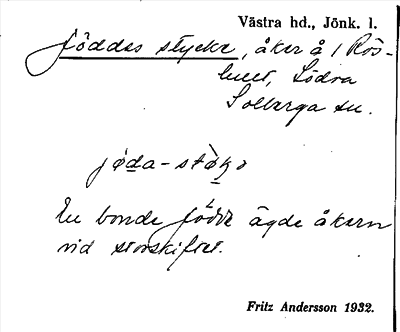 Västra hd., Jönk. l.
Jöddes stycke, åker å 1 Rös-
hult, Södra
Solberga sn.
jøda-støkə
En bonde Jödde ägde åkern
vid storskiftet.
Fritz Andersson 1932.